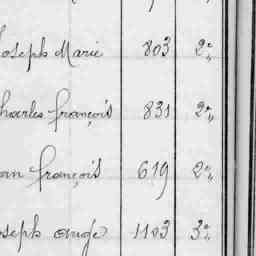 Joseph Marie 803 2e
Charles françois 831 2e
Jean françois 619 2e
Joseph ange 1103 3e